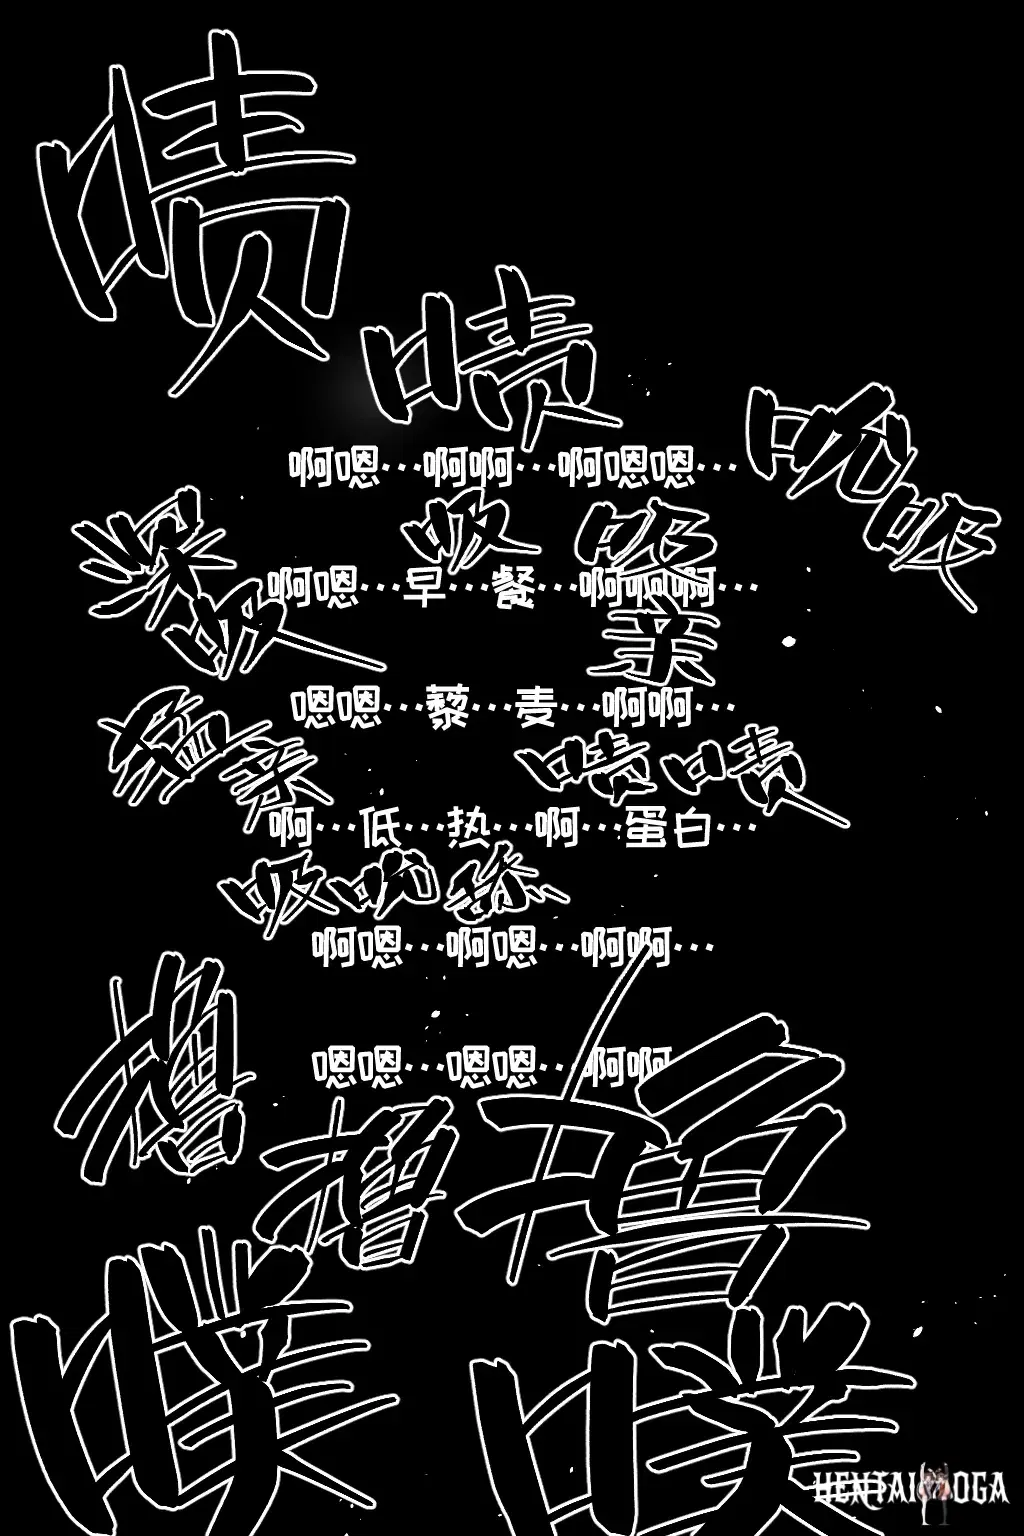 啧
啧
吮吸
啊嗯…啊啊…啊嗯嗯…
吸 吸
深吸
啊嗯…早…餐…啊啊啊…
亲
嗯嗯…藜…麦…啊啊…
猛亲
啧啧
啊…低…热…啊…蛋白…
吸吮舔
啊嗯…啊嗯…啊啊…
嗯嗯…嗯嗯…啊啊
撸
撸
撸
噗
噗
HENTAI YOGA